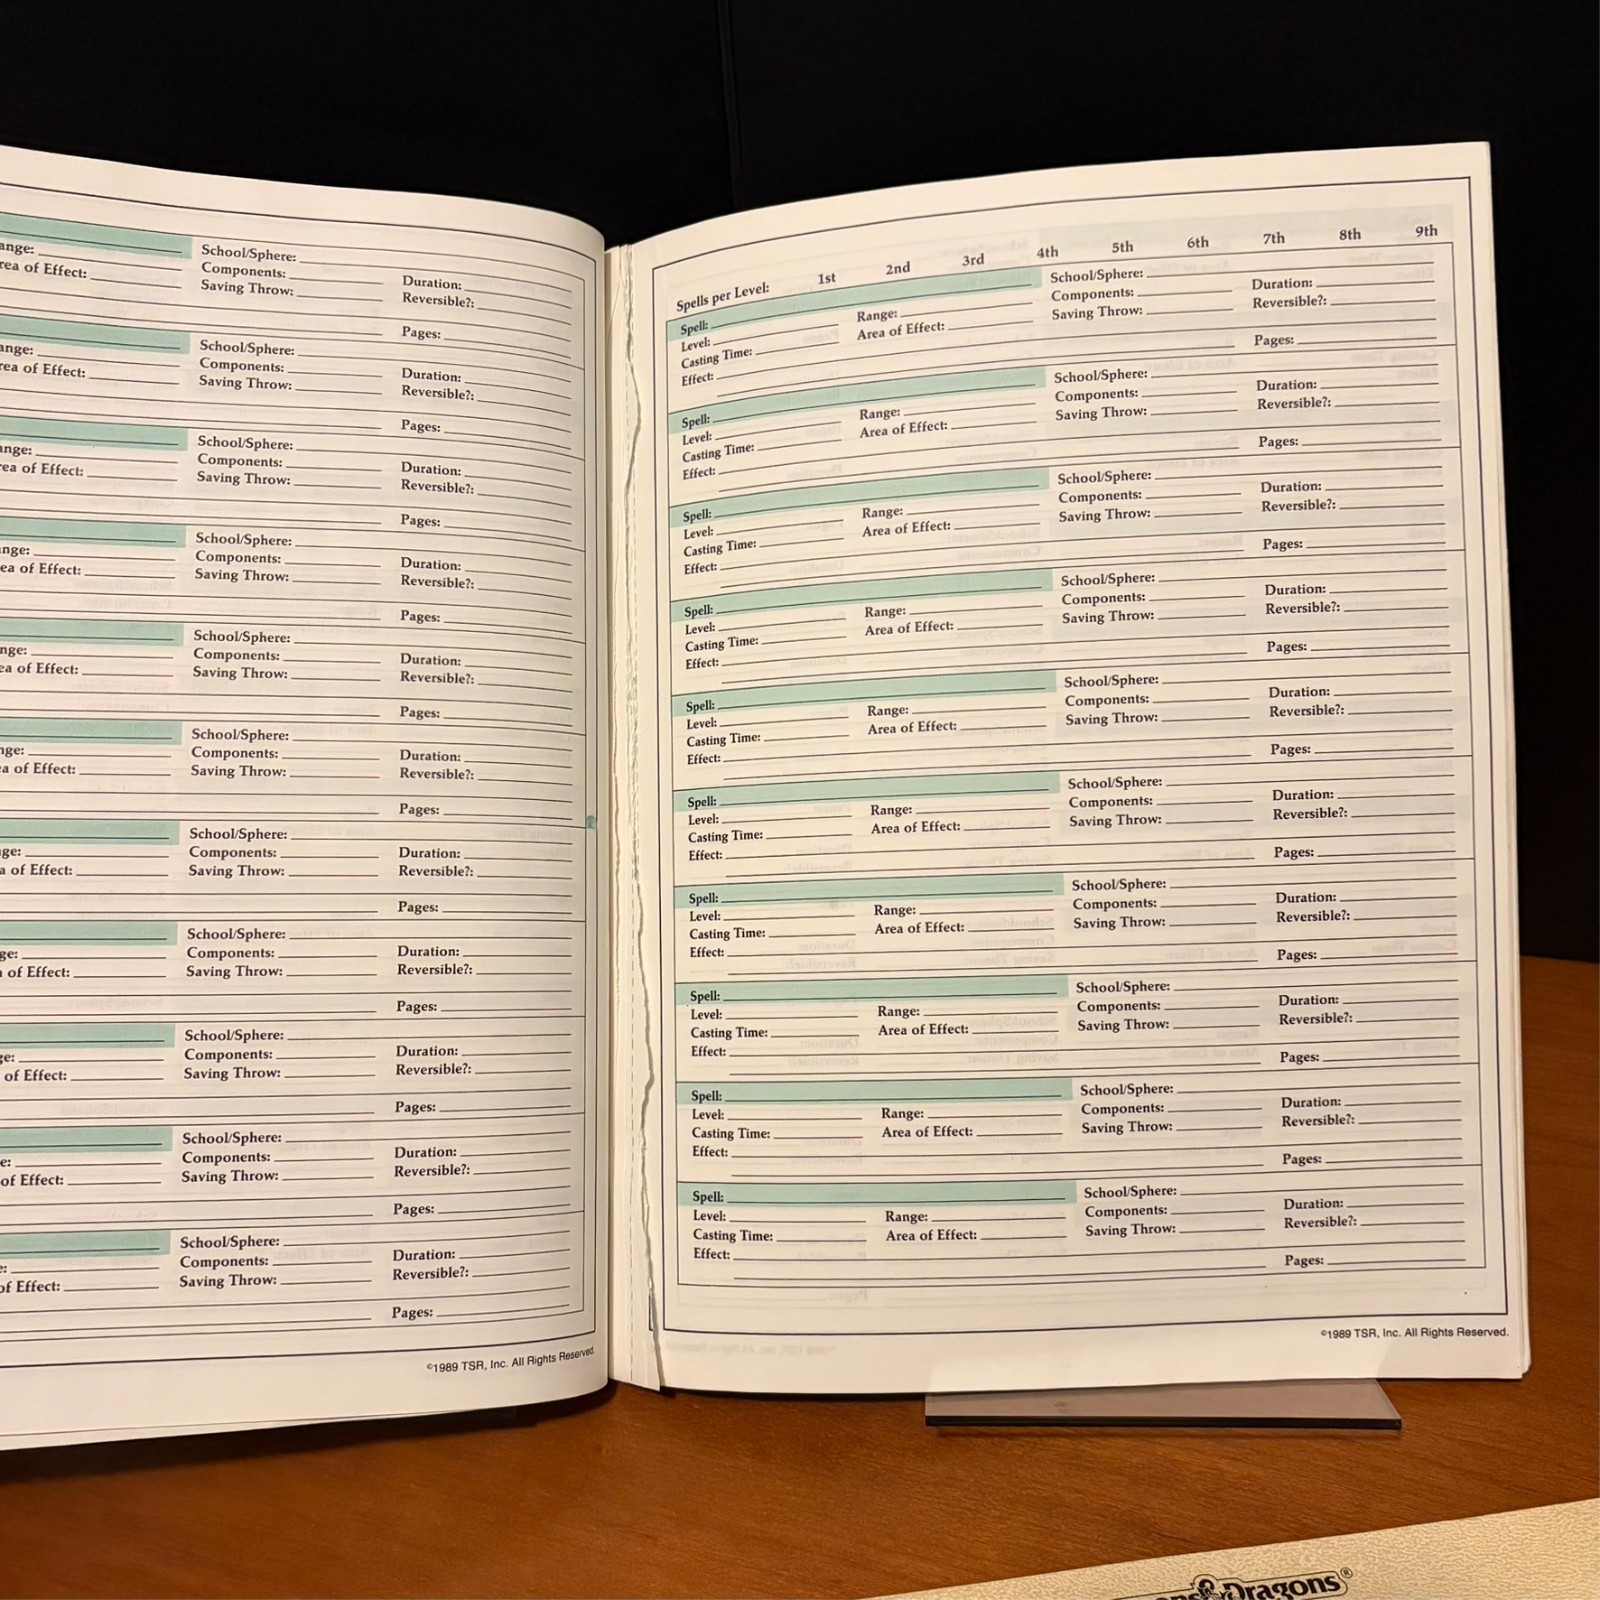 School/Sphere:
ange: Components: Duration:
rea of Effect: Saving Throw: Reversible?:
Pages:
School/Sphere:
ange: Components: Duration:
rea of Effect: Saving Throw: Reversible?:
Pages:
School/Sphere:
nge: Components: Duration:
rea of Effect: Saving Throw: Reversible?:
Pages:
School/Sphere:
nge: Components: Duration:
ea of Effect: Saving Throw: Reversible?:
Pages:
School/Sphere:
nge: Components: Duration:
ea of Effect: Saving Throw: Reversible?:
Pages:
School/Sphere:
nge: Components: Duration:
a of Effect: Saving Throw: Reversible?:
Pages:
School/Sphere:
ge: Components: Duration:
a of Effect: Saving Throw: Reversible?:
Pages:
School/Sphere:
ge: Components: Duration:
of Effect: Saving Throw: Reversible?:
Pages:
School/Sphere:
ge: Components: Duration:
of Effect: Saving Throw: Reversible?:
Pages:
School/Sphere:
e: Components: Duration:
of Effect: Saving Throw: Reversible?:
Pages:
School/Sphere:
e: Components: Duration:
of Effect: Saving Throw: Reversible?:
Pages:
©1989 TSR, Inc. All Rights Reserved.
Spells per Level: 1st 2nd 3rd 4th 5th 6th 7th 8th 9th
Spell: School/Sphere:
Level: Range: Components: Duration:
Casting Time: Area of Effect: Saving Throw: Reversible?:
Effect: Pages:
Spell: School/Sphere:
Level: Range: Components: Duration:
Casting Time: Area of Effect: Saving Throw: Reversible?:
Effect: Pages:
Spell: School/Sphere:
Level: Range: Components: Duration:
Casting Time: Area of Effect: Saving Throw: Reversible?:
Effect: Pages:
Spell: School/Sphere:
Level: Range: Components: Duration:
Casting Time: Area of Effect: Saving Throw: Reversible?:
Effect: Pages:
Spell: School/Sphere:
Level: Range: Components: Duration:
Casting Time: Area of Effect: Saving Throw: Reversible?:
Effect: Pages:
Spell: School/Sphere:
Level: Range: Components: Duration:
Casting Time: Area of Effect: Saving Throw: Reversible?:
Effect: Pages:
Spell: School/Sphere:
Level: Range: Components: Duration:
Casting Time: Area of Effect: Saving Throw: Reversible?:
Effect: Pages:
Spell: School/Sphere:
Level: Range: Components: Duration:
Casting Time: Area of Effect: Saving Throw: Reversible?:
Effect: Pages:
Spell: School/Sphere:
Level: Range: Components: Duration:
Casting Time: Area of Effect: Saving Throw: Reversible?:
Effect: Pages:
Spell: School/Sphere:
Level: Range: Components: Duration:
Casting Time: Area of Effect: Saving Throw: Reversible?:
Effect: Pages:
©1989 TSR, Inc. All Rights Reserved.
&Dragons®